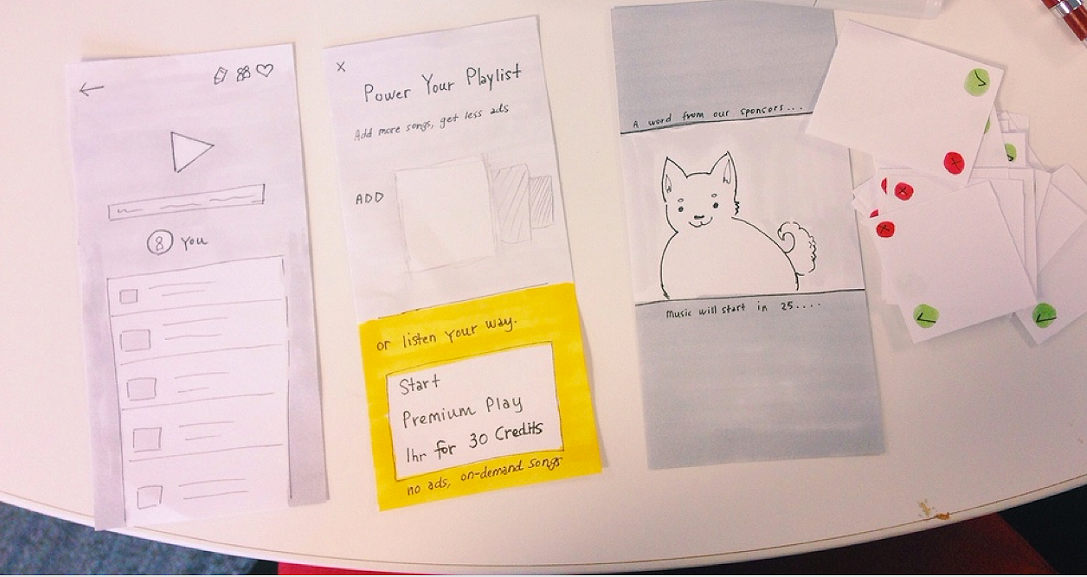 You
Power Your Playlist
Add more songs, get less ads
ADD
or listen your way.
Start
Premium Play
1hr for 30 Credits
no ads, on-demand songs
A word from our sponsors...
Music will start in 25....